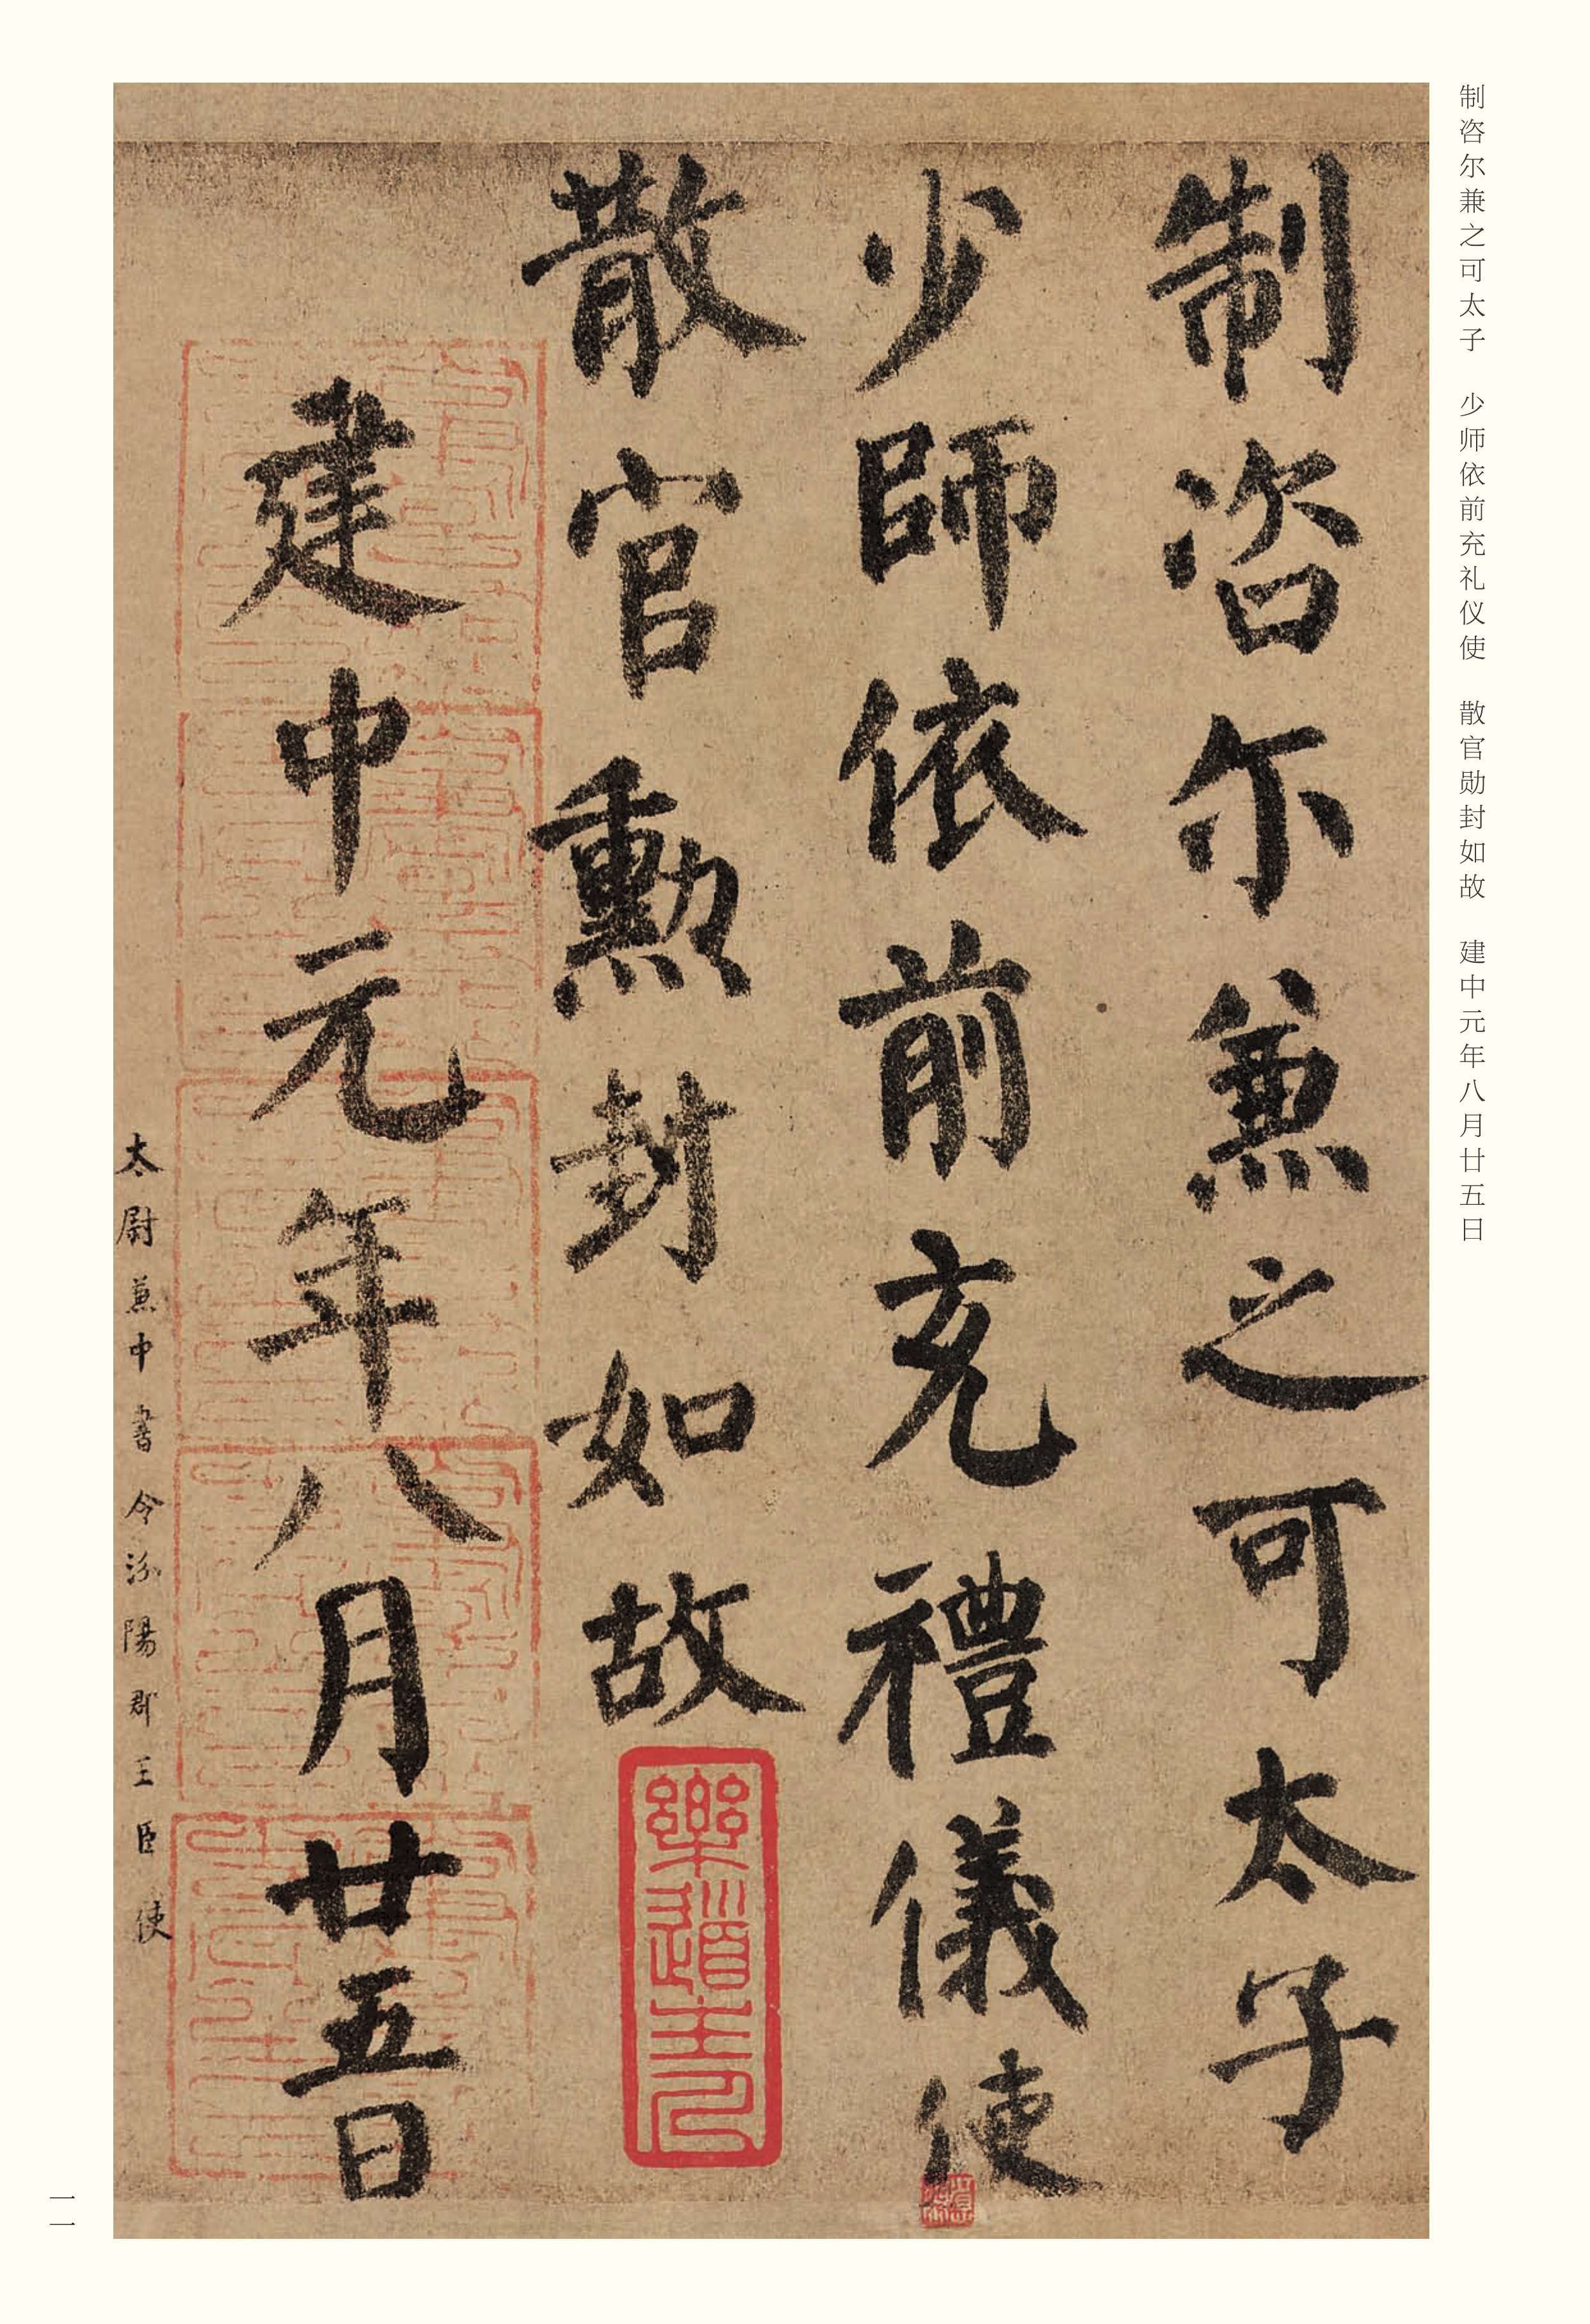 制咨尔兼之可太子　少师依前充礼仪使　散官勋封如故　建中元年八月廿五日
制咨尔兼之可太子
少師依前充禮儀使
散官勲封如故
建中元年八月廿五日
太尉兼中書令汾陽郡王臣使
樂道主人
一一